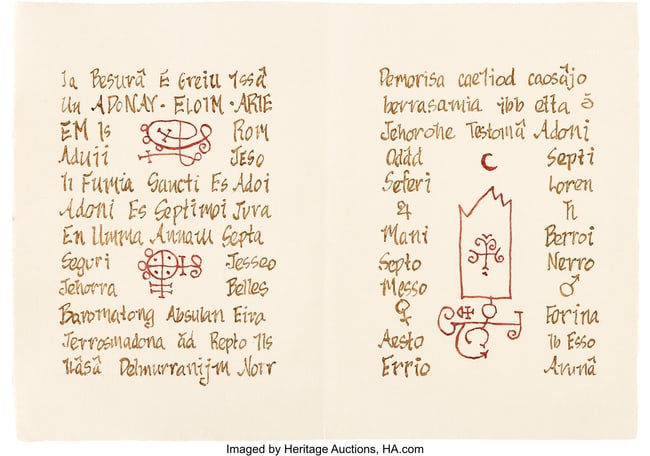 Ia Besurâ E Greiu Issâ
Un ADONAY · ELOIM · ARIE
EM Is Rom
Aduii Jeso
Ii Fumia Sancti Es Adoi
Adoni Es Septimoi Jura
En Umma Annam Septa
Seguri Jesseo
Jehorra Belles
Baromatong Absulan Eira
Jerrosmadona ăd Repto Ils
Ilâsâ Delmurranijm Norr
Demorisa caeliod caosâjo
berrasamia ibb etta ō
Jehorohe Testomâ Adoni
Oddd ☾ Septi
Seferi Loren
♃ ♄
Mani Berroi
Septo Nerro
Messo ♂
♀ Forina
Aesto Ib Esso
Errio Arunâ
Imaged by Heritage Auctions, HA.com